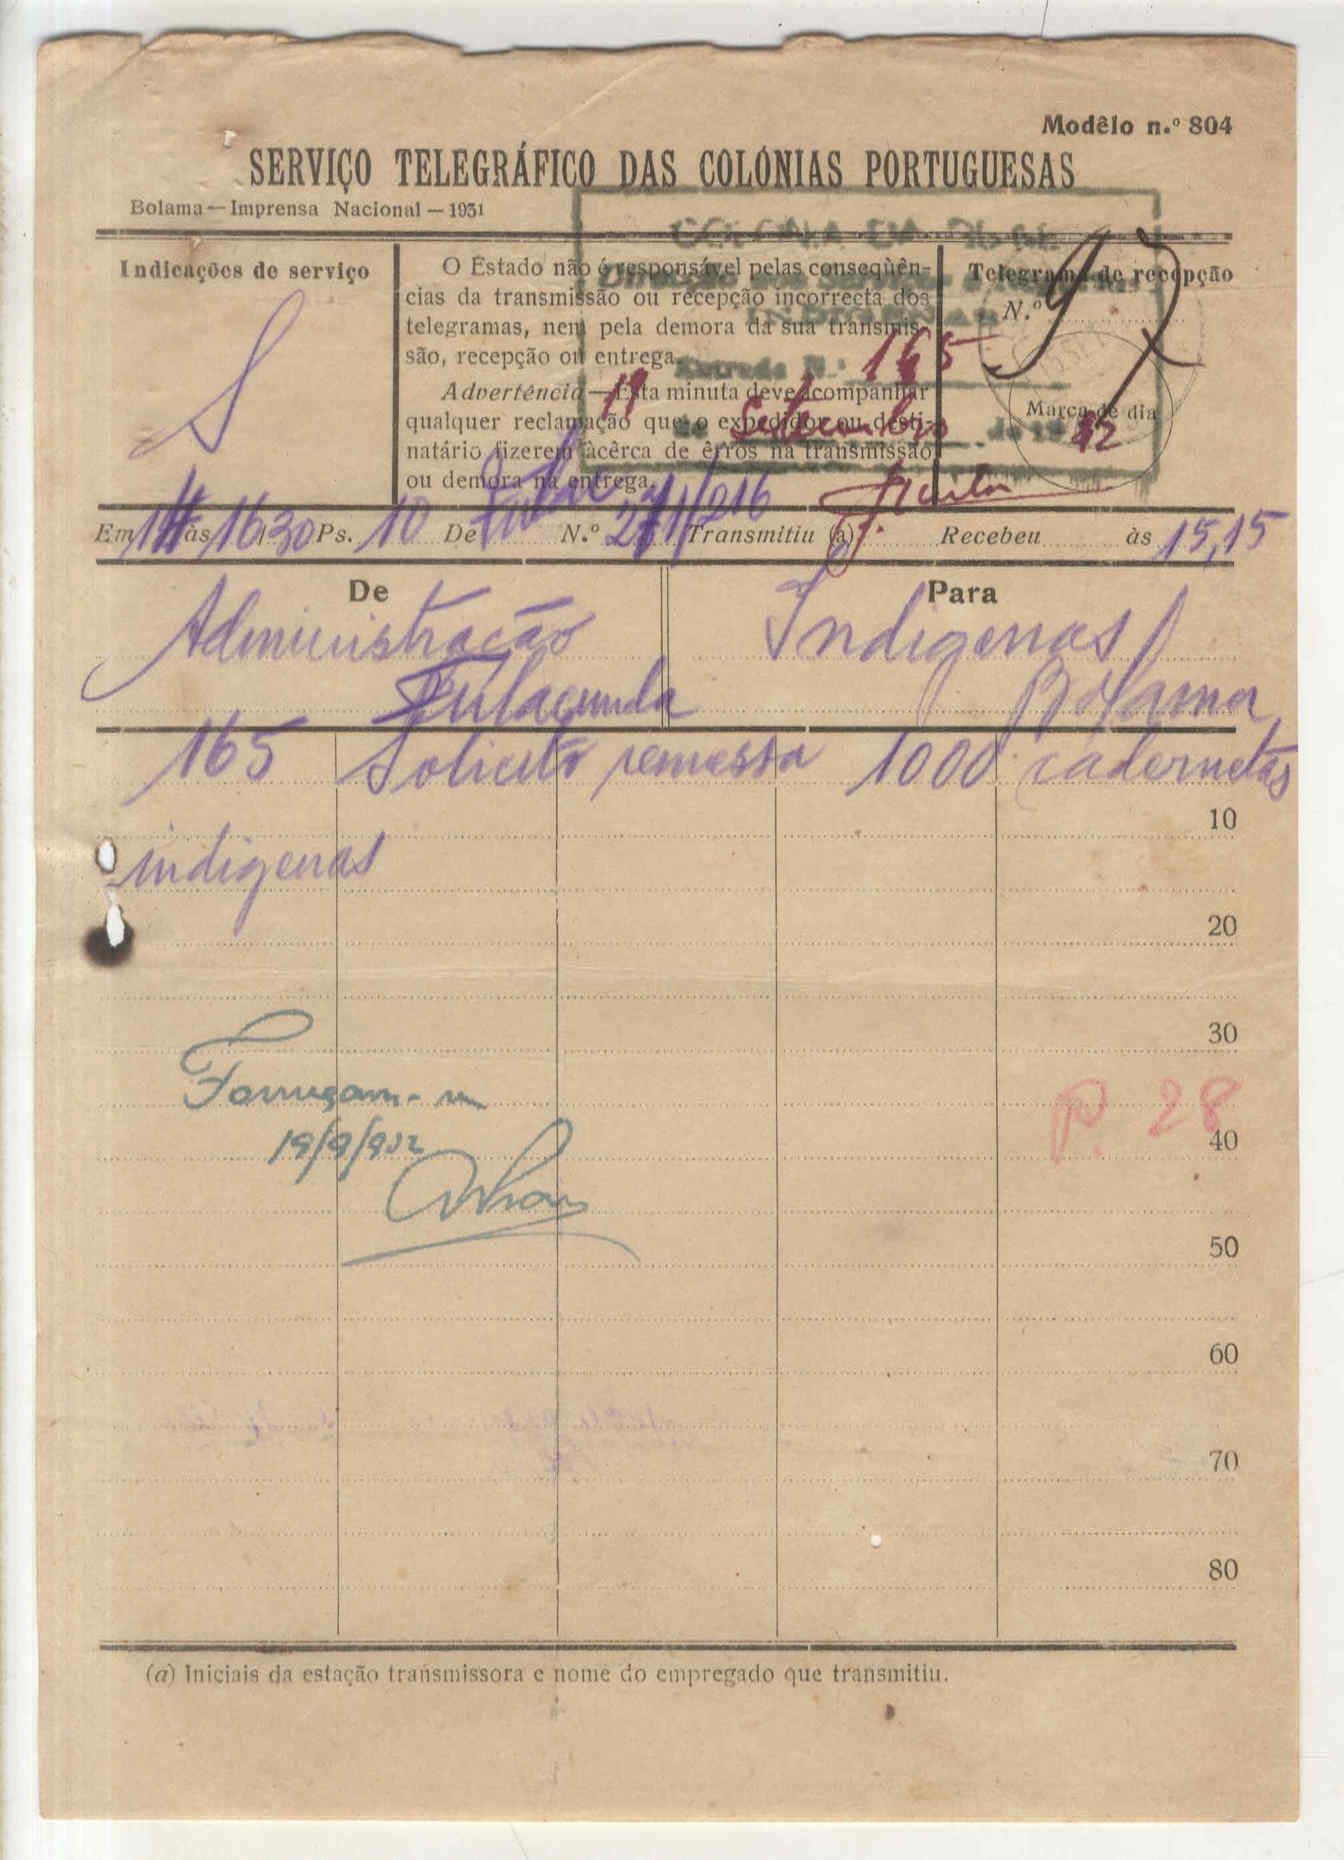 Modêlo n.º 804
SERVIÇO TELEGRÁFICO DAS COLÓNIAS PORTUGUESAS
Bolama — Imprensa Nacional — 1931
Indicações de serviço
S
O Estado não é responsável pelas conseqüên-
cias da transmissão ou recepção incorrecta dos
telegramas, nem pela demora da sua transmis-
são, recepção ou entrega.
Advertência — Esta minuta deve acompanhar
qualquer reclamação que o expedidor ou desti-
natário fizerem àcêrca de êrros na transmissão
ou demora na entrega.
Telegrama de recepção
N.º 97
Marca de dia
Direcção dos Serviços
INDIGENAS
Entrada N.º 165
19 de Setembro de 19 32
Em às 16,30 Ps. 10 De N.º 216 Transmitiu (a) Recebeu às 15,15
De
Administração
Fulacunda
Para
Indigenas
Bolama
165 Solicito remessa 1000 cadernetas
indigenas
10
20
30
40
50
60
70
80
Forneçam-se
19/9/932
P. 28
(a) Iniciais da estação transmissora e nome do empregado que transmitiu.